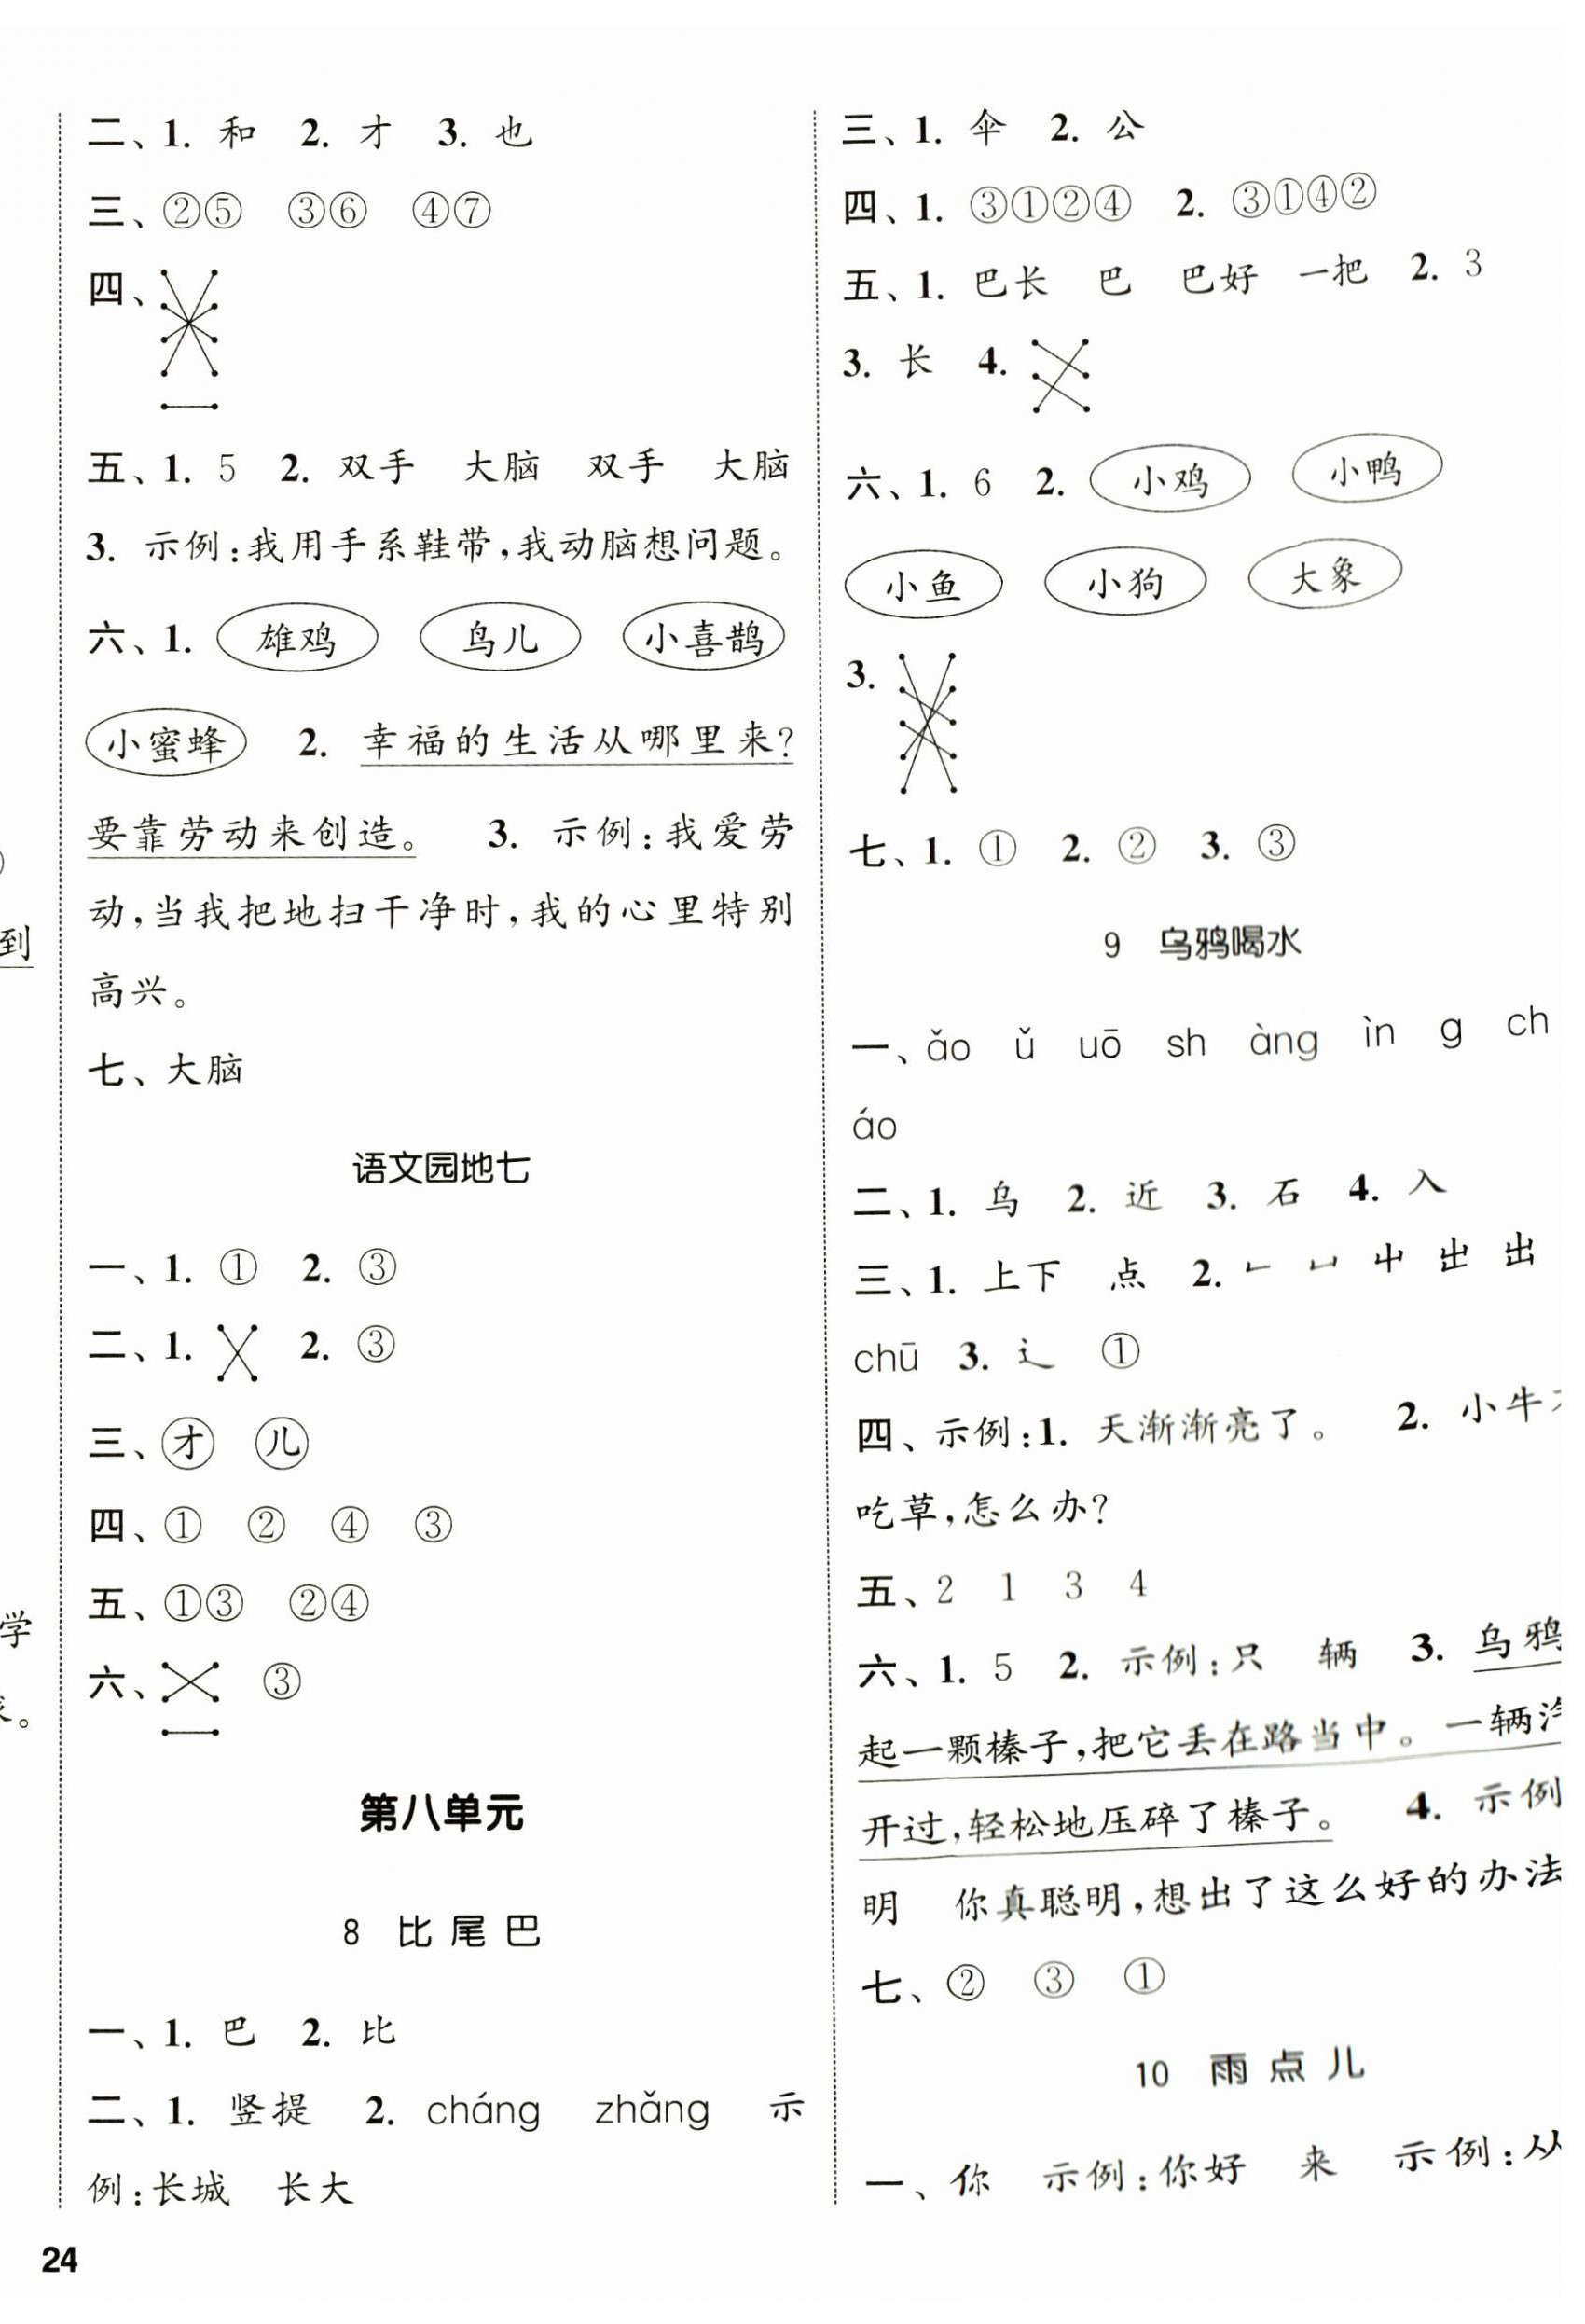 二、1. 和 2. 才 3. 也
三、②⑤ ③⑥ ④⑦
四、
五、1. 5 2. 双手 大脑 双手 大脑
3. 示例:我用手系鞋带,我动脑想问题。
六、1. 雄鸡 鸟儿 小喜鹊
小蜜蜂 2. 幸福的生活从哪里来?
要靠劳动来创造。 3. 示例:我爱劳
动,当我把地扫干净时,我的心里特别
高兴。
七、大脑
语文园地七
一、1. ① 2. ③
二、1. 2. ③
三、才 儿
四、① ② ④ ③
五、①③ ②④
六、 ③
第八单元
8 比尾巴
一、1. 巴 2. 比
二、1. 竖提 2. cháng zhǎng 示
例:长城 长大
24
到
学
。
三、1. 伞 2. 公
四、1. ③①②④ 2. ③①④②
五、1. 巴长 巴 巴好 一把 2. 3
3. 长 4.
六、1. 6 2. 小鸡 小鸭
小鱼 小狗 大象
3.
七、1. ① 2. ② 3. ③
9 乌鸦喝水
一、ǎo ǔ uō sh àng ìn g ch
áo
二、1. 乌 2. 近 3. 石 4. 入
三、1. 上下 点 2. 屮 出 出
chū 3. 辶 ①
四、示例:1. 天渐渐亮了。 2. 小牛
吃草,怎么办?
五、2 1 3 4
六、1. 5 2. 示例:只 辆 3. 乌鸦
起一颗榛子,把它丢在路当中。一辆
开过,轻松地压碎了榛子。 4. 示例
明 你真聪明,想出了这么好的办法
七、② ③ ①
10 雨点儿
一、你 示例:你好 来 示例:从